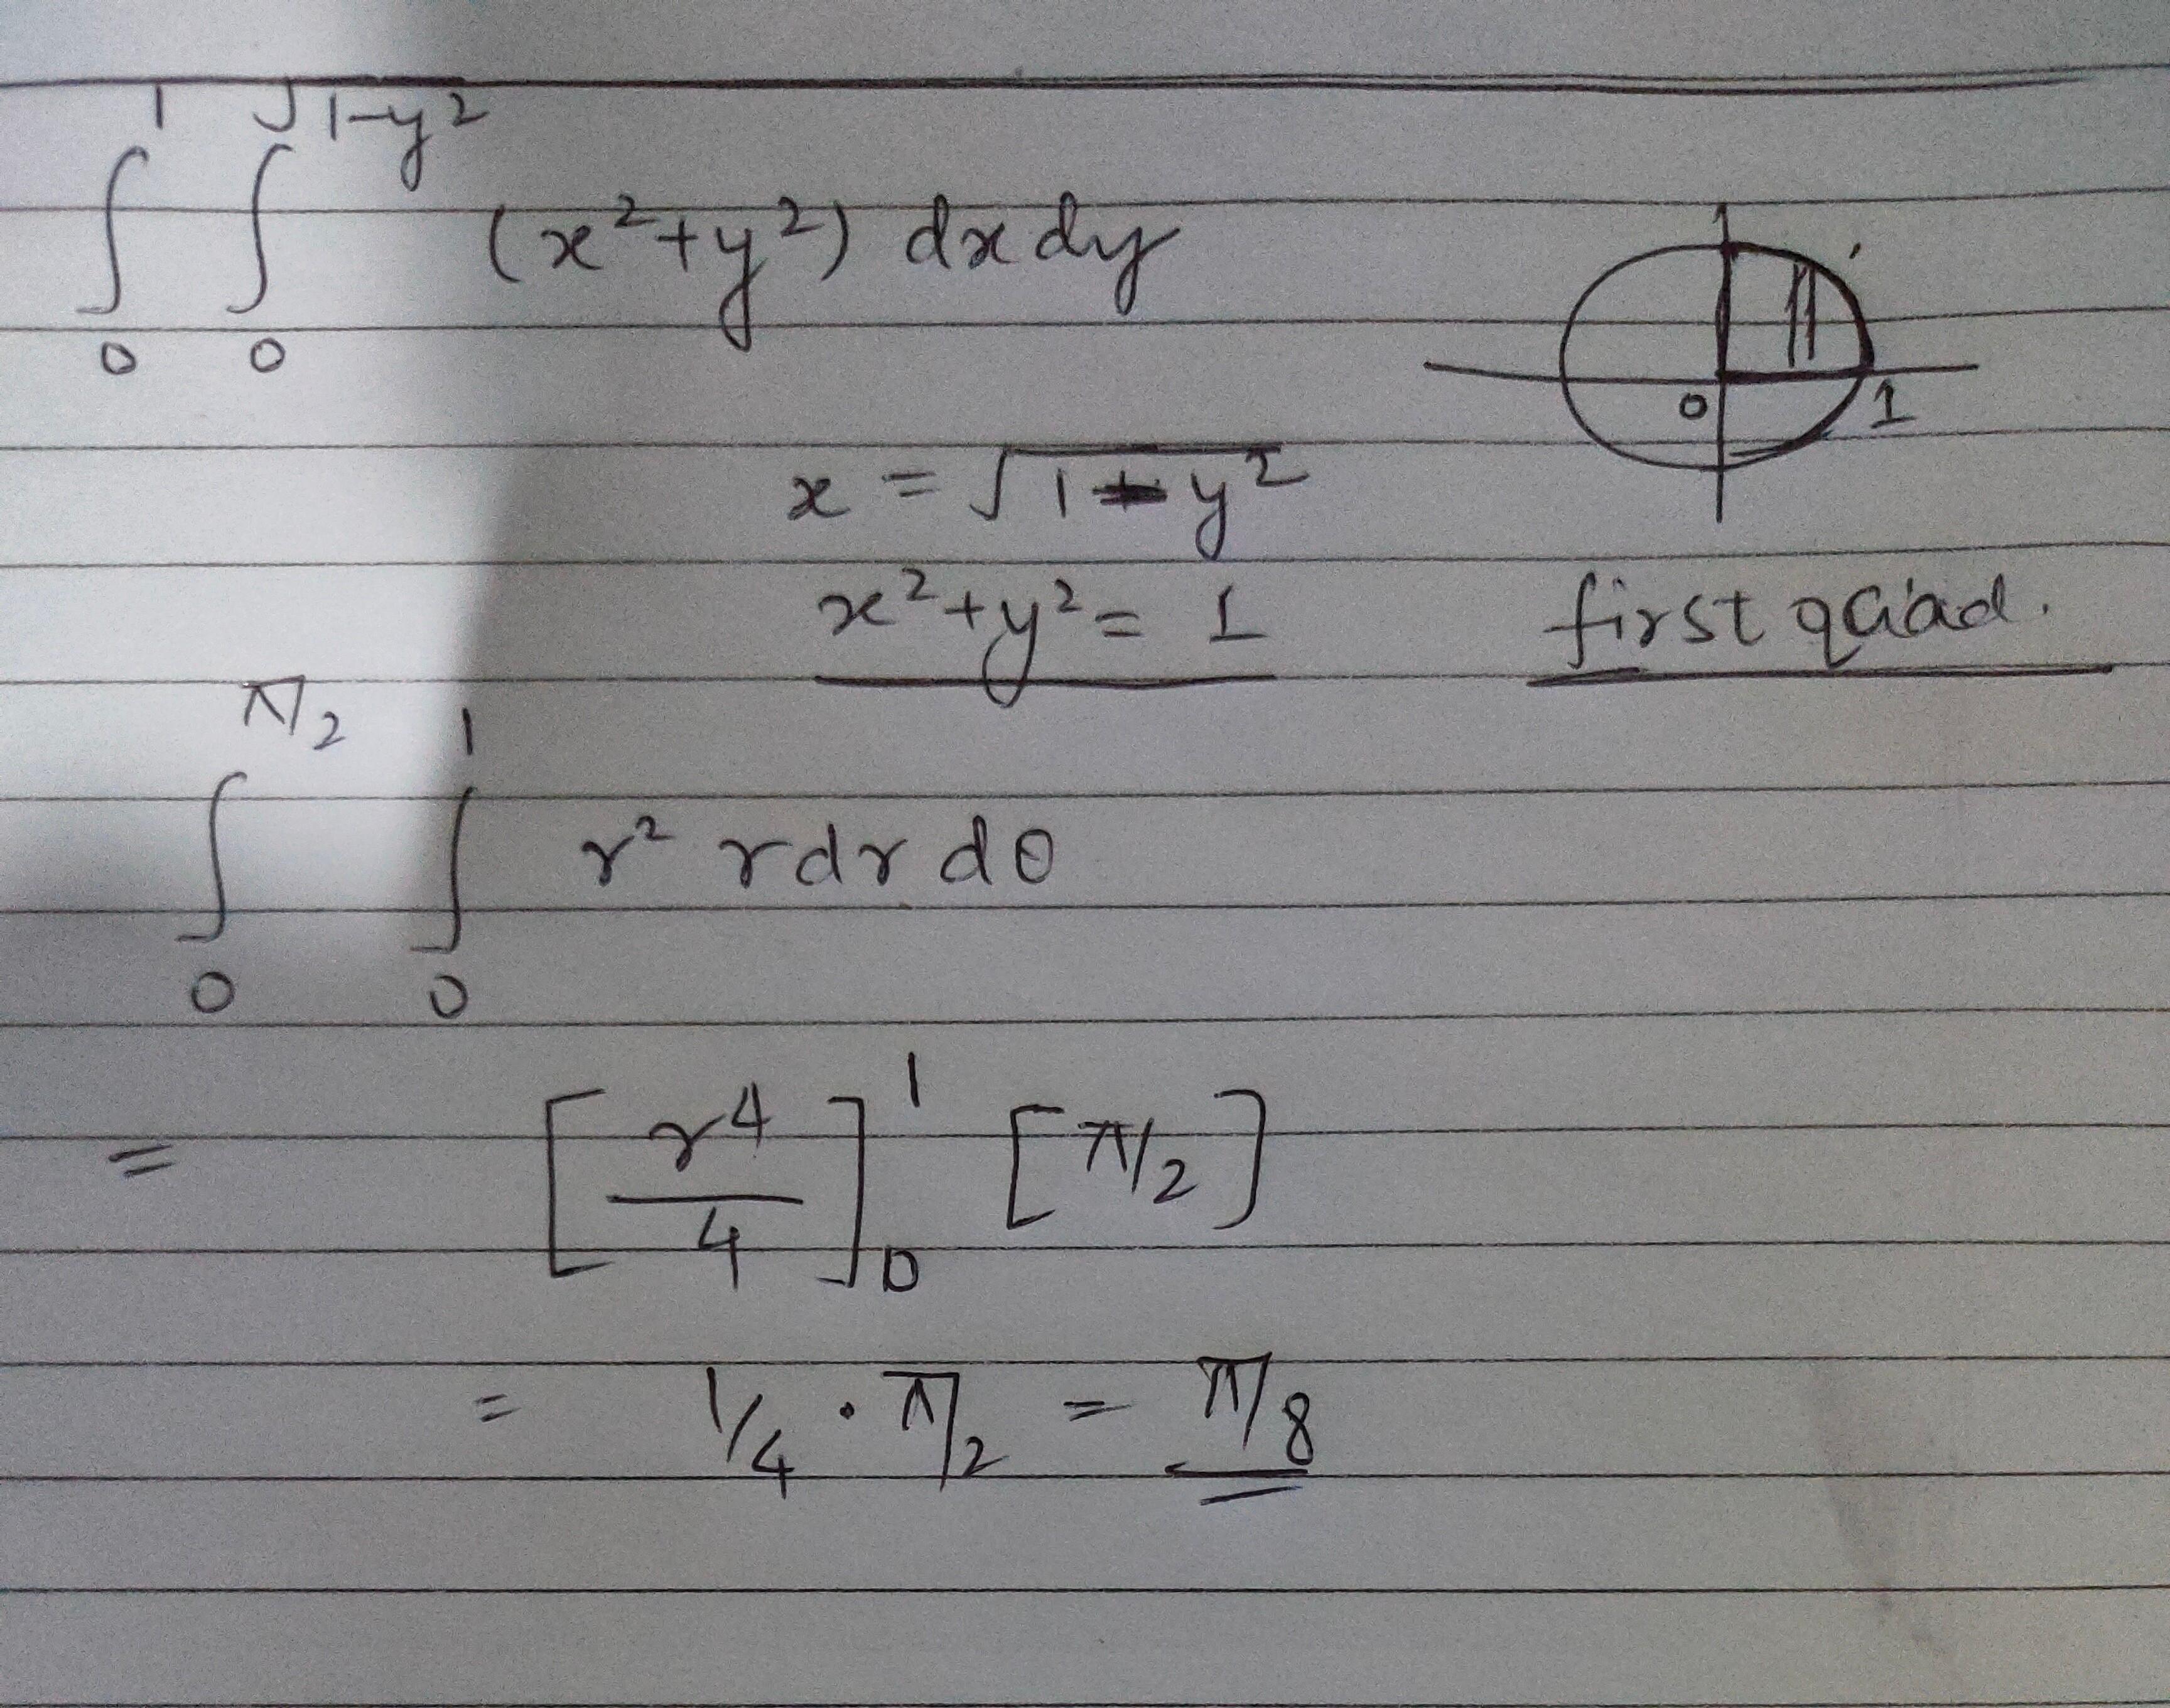 ∫₀¹ ∫₀^√(1-y²) (x²+y²) dx dy
0 1
x = √(1-y²)
x²+y² = 1 first quad.
∫₀^π/2 ∫₀¹ r² r dr dθ
= [r⁴/4]₀¹ [π/2]
= 1/4 · π/2 = π/8